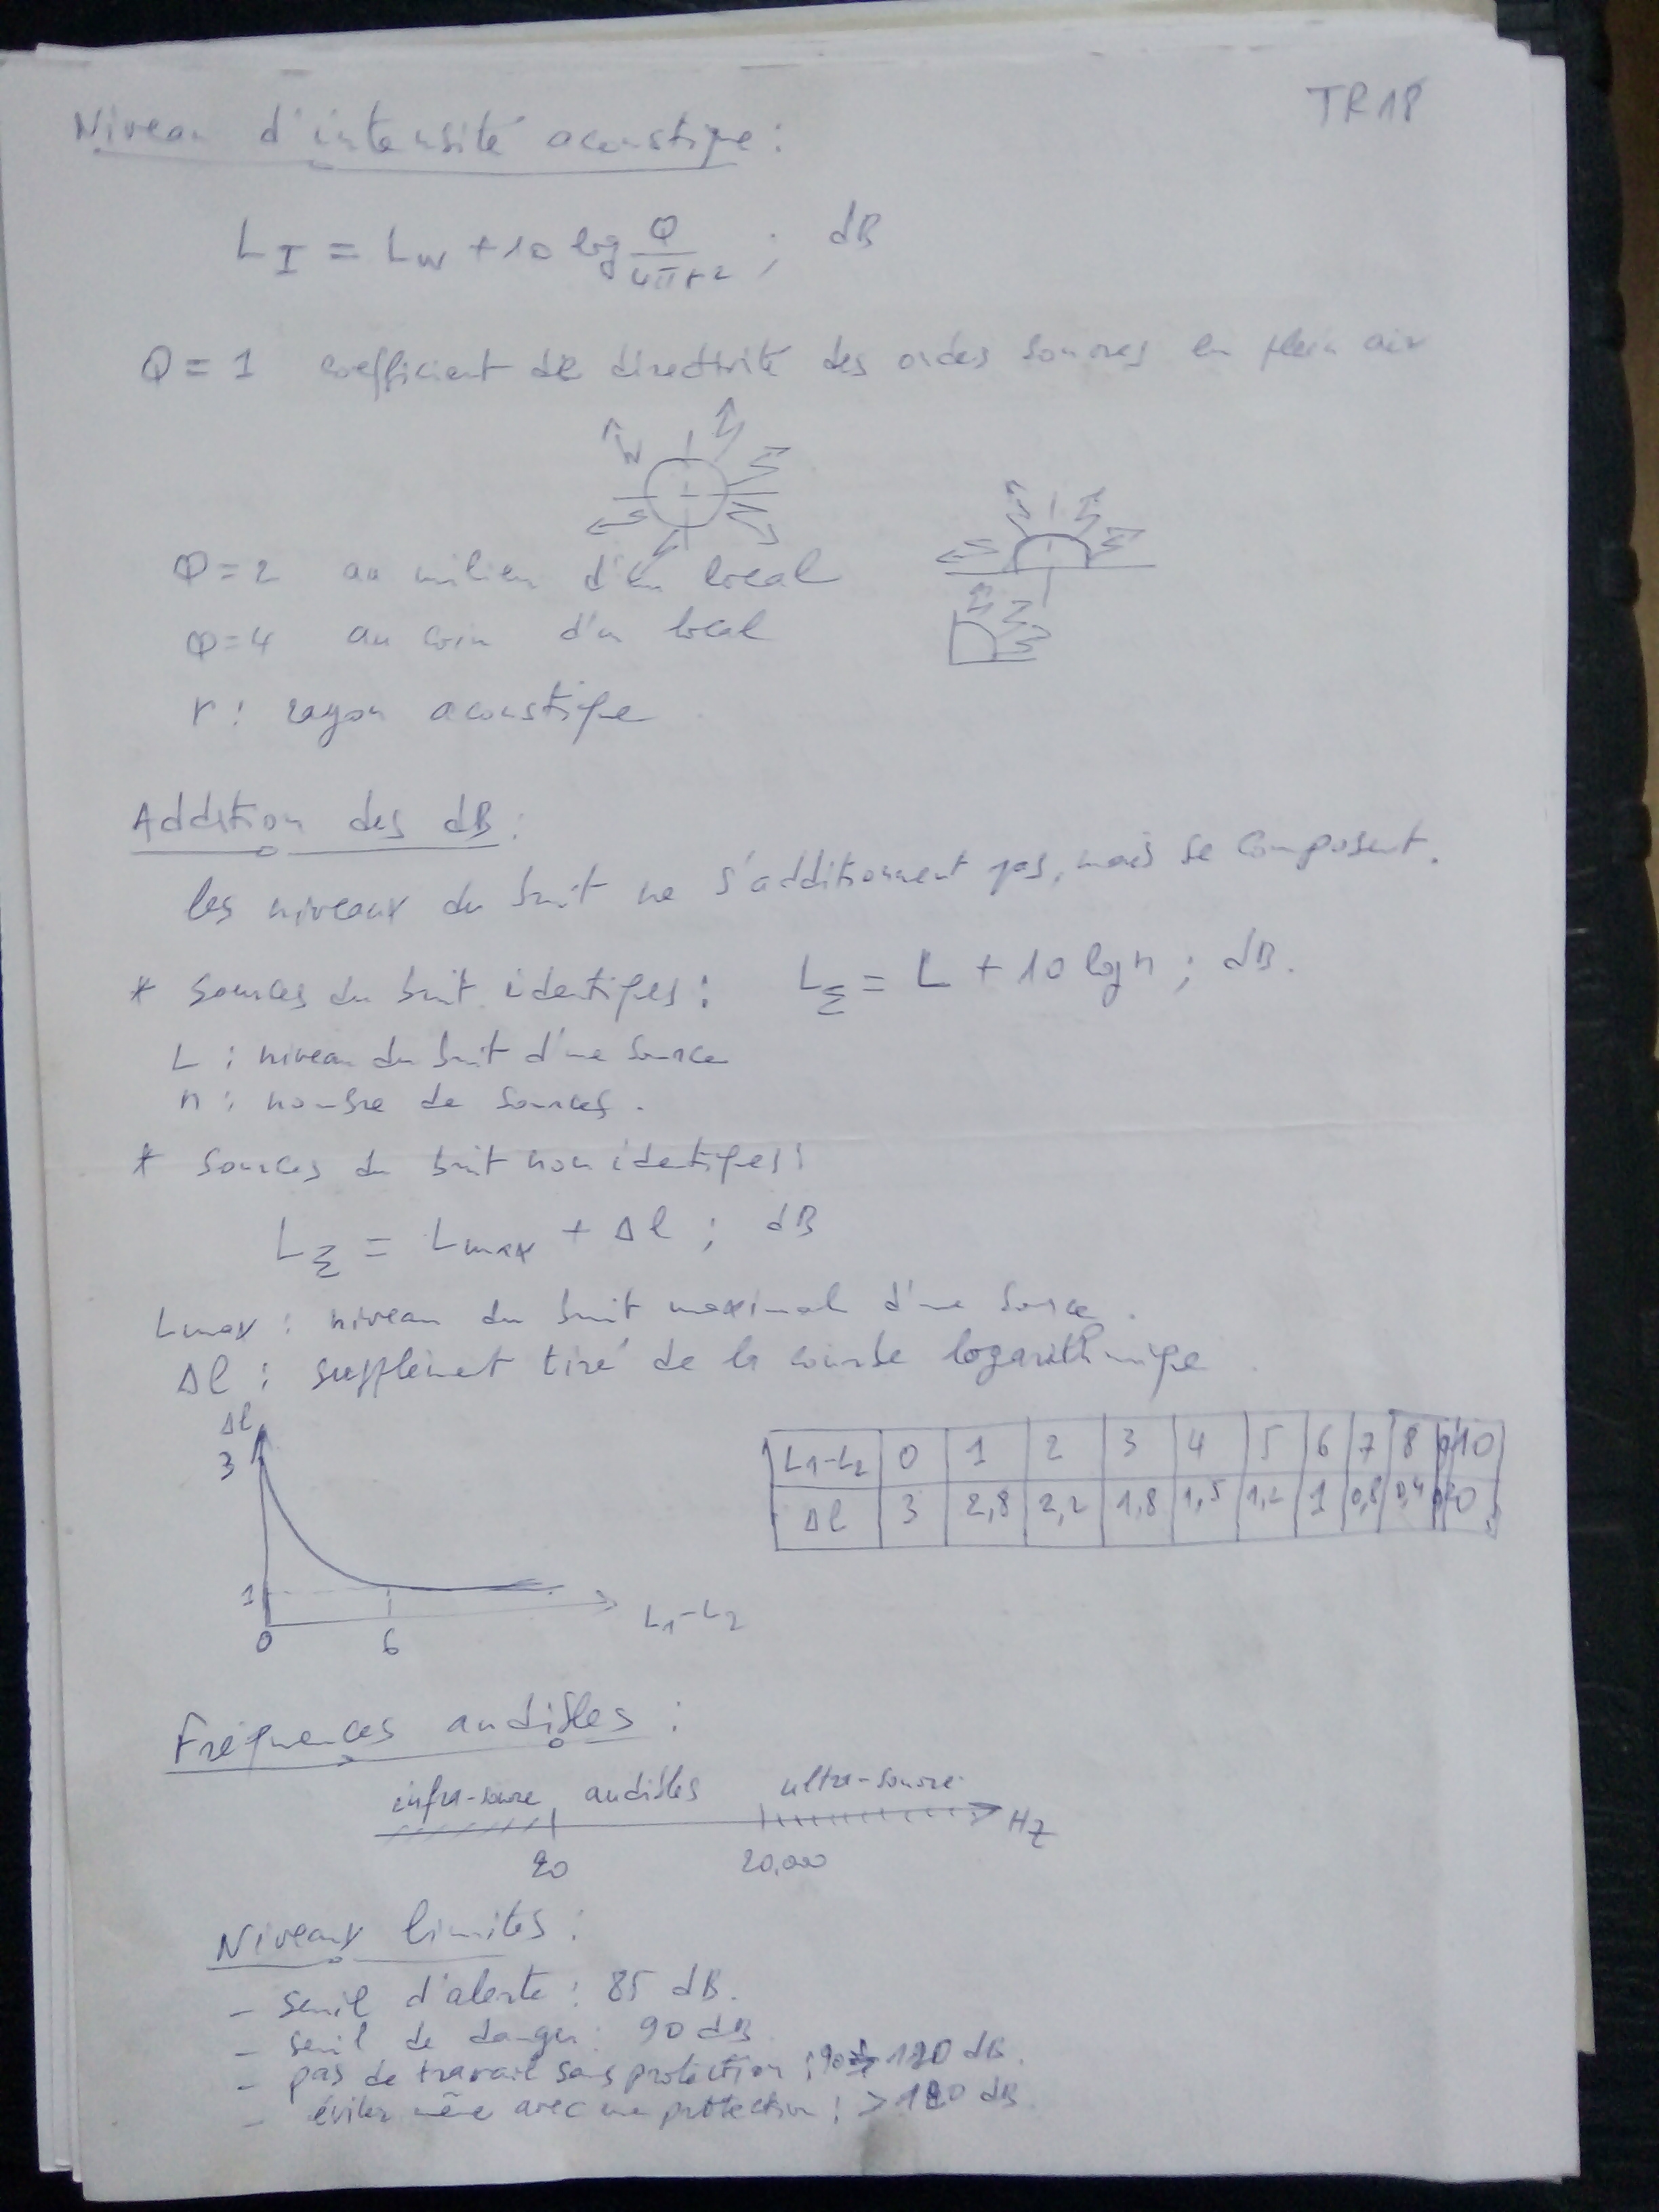 TR18
Niveau d'intensité acoustique :
L_I = L_W + 10 log Q/4πr² ; dB
Q = 1 coefficient de directivité des ondes sonores en plein air
W
Q = 2 au milieu d'un local
Q = 4 au coin d'un local
r : rayon acoustique
Addition des dB :
les niveaux du bruit ne s'additionnent pas, mais se composent.
* Sources du bruit identiques : L_Σ = L + 10 log n ; dB.
L : niveau du bruit d'une source
n : nombre de sources.
* Sources du bruit non identiques :
L_Σ = Lmax + Δl ; dB
Lmax : niveau du bruit maximal d'une source.
Δl : supplément tiré de la courbe logarithmique
Δl
3
1
0 6
L₁-L₂
L₁-L₂ 0 1 2 3 4 5 6 7 8 10
Δl 3 2,8 2,2 1,8 1,5 1,2 1 0,8 0,4 0
Fréquences audibles :
infra-sonore audibles ultra-sonore
Hz
20 20,000
Niveaux limites :
- seuil d'alerte : 85 dB.
- seuil de danger : 90 dB
- pas de travail sans protection : 90 120 dB.
- éviter même avec une protection : > 120 dB.